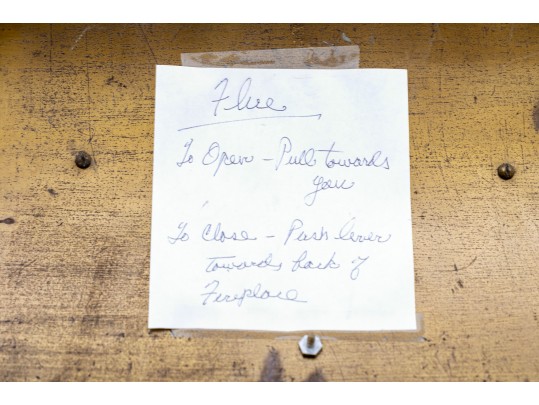 Flue
To Open - Pull towards
you
To Close - Push lever
towards back of
Fireplace